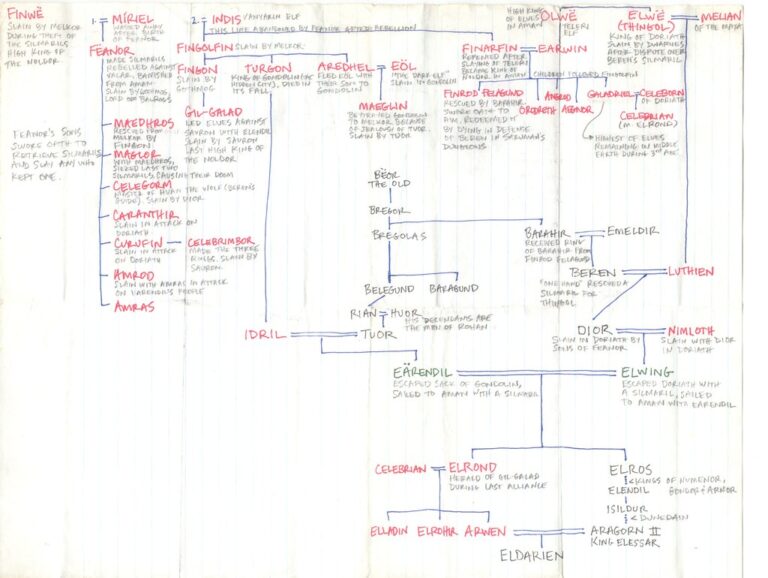 FINWË
SLAIN BY MELKOR
DURING THEFT OF
THE SILMARILS
HIGH KING OF
THE NOLDOR
1. = MÍRIEL
WASTED AWAY
AFTER BIRTH
OF FËANOR
2. = INDIS VANYARIN ELF
THIS LINE ABANDONED BY FEANOR AFTER REBELLION
HIGH KING
OF ELVES
IN AMAN
OLWË
TELERI
ELF
ELWË
(THINGOL)
KING OF DORIATH
SLAIN BY DWARVES
AFTER DISPUTE OVER
BEREN'S SILMARIL
MELIAN
OF THE MAIAR
FËANOR
MADE SILMARILS
REBELLED AGAINST
VALAR, BANISHED
FROM AMAN
SLAIN BY GOTHMOG
LORD OF BALROGS
FINGOLFIN SLAIN BY MELKOR
FINGON
SLAIN BY
GOTHMOG
TURGON
KING OF GONDOLIN (THE
HIDDEN CITY), DIED IN
ITS FALL
AREDHEL
FLED EÖL WITH
THEIR SON TO
GONDOLIN
EÖL
"THE DARK ELF"
SLAIN IN GONDOLIN
FINARFIN
REPENTED AFTER
SLAYING OF TELERI
BECAME KING OF
NOLDOR IN AMAN
EARWIN
CHILDREN FOLLOWED FINGOLFIN
GIL-GALAD
LED ELVES AGAINST
SAURON WITH ELENDIL
SLAIN BY SAURON
LAST HIGH KING OF THE
NOLDOR
MAEGLIN
BETRAYED GONDOLIN
TO MELKOR BECAUSE
OF JEALOUSY OF TUOR.
SLAIN BY TUOR
FINROD FELAGUND
RESCUED BY BARAHIR.
SWORE OATH TO
HIM, REDEEMED IT
BY DYING IN DEFENSE
OF BEREN IN SAURON'S
DUNGEONS
ORODRETH
ANGROD
AEGNOR
GALADRIEL
CELEBORN
OF DORIATH
CELEBRIAN
(M. ELROND)
HIGHEST OF ELVES
REMAINING IN MIDDLE
EARTH DURING 3RD AGE
FEANOR'S SONS
SWORE OATH TO
RETRIEVE SILMARILS
AND SLAY ANY WHO
KEPT ONE.
MAEDHROS
RESCUED FROM
MELKOR BY
FINGON.
MAGLOR
WITH MAEDHROS,
SEIZED LAST TWO
SILMARILS, CAUSING THEIR DOOM
CELEGORM
MASTER OF HUAN THE WOLF (BEREN'S
GUIDE). SLAIN BY DIOR
CARANTHIR
SLAIN IN ATTACK ON
DORIATH
CURUFIN
SLAIN IN ATTACK
ON DORIATH
CELEBRIMBOR
MADE THE THREE
RINGS. SLAIN BY
SAURON.
AMROD
SLAIN WITH AMRAS IN ATTACK
ON EARENDIL'S PEOPLE
AMRAS
BËOR
THE OLD
BREGOR
BREGOLAS
BARAHIR
RECEIVED RING
OF BARAHIR FROM
FINROD FELAGUND
EMELDIR
BEREN
"ONE HAND" RESCUED A
SILMARIL FOR
THINGOL
LUTHIEN
BELEGUND
BARAGUND
RIAN = HUOR
HIS DESCENDANTS ARE
THE MEN OF ROHAN
IDRIL
TUOR
DIOR
SLAIN IN DORIATH BY
SONS OF FEANOR
NIMLOTH
SLAIN WITH DIOR
IN DORIATH
EÄRENDIL
ESCAPED SACK OF GONDOLIN,
SAILED TO AMAN WITH A SILMARIL
ELWING
ESCAPED DORIATH WITH
A SILMARIL, SAILED
TO AMAN WITH EARENDIL
CELEBRIAN
ELROND
HERALD OF GIL-GALAD
DURING LAST ALLIANCE
ELROS
< KINGS OF NUMENOR,
ELENDIL GONDOR & ARNOR
ISILDUR
< DUNEDAIN
ELLADIN ELROHIR ARWEN
ARAGORN II
KING ELESSAR
ELDARIEN